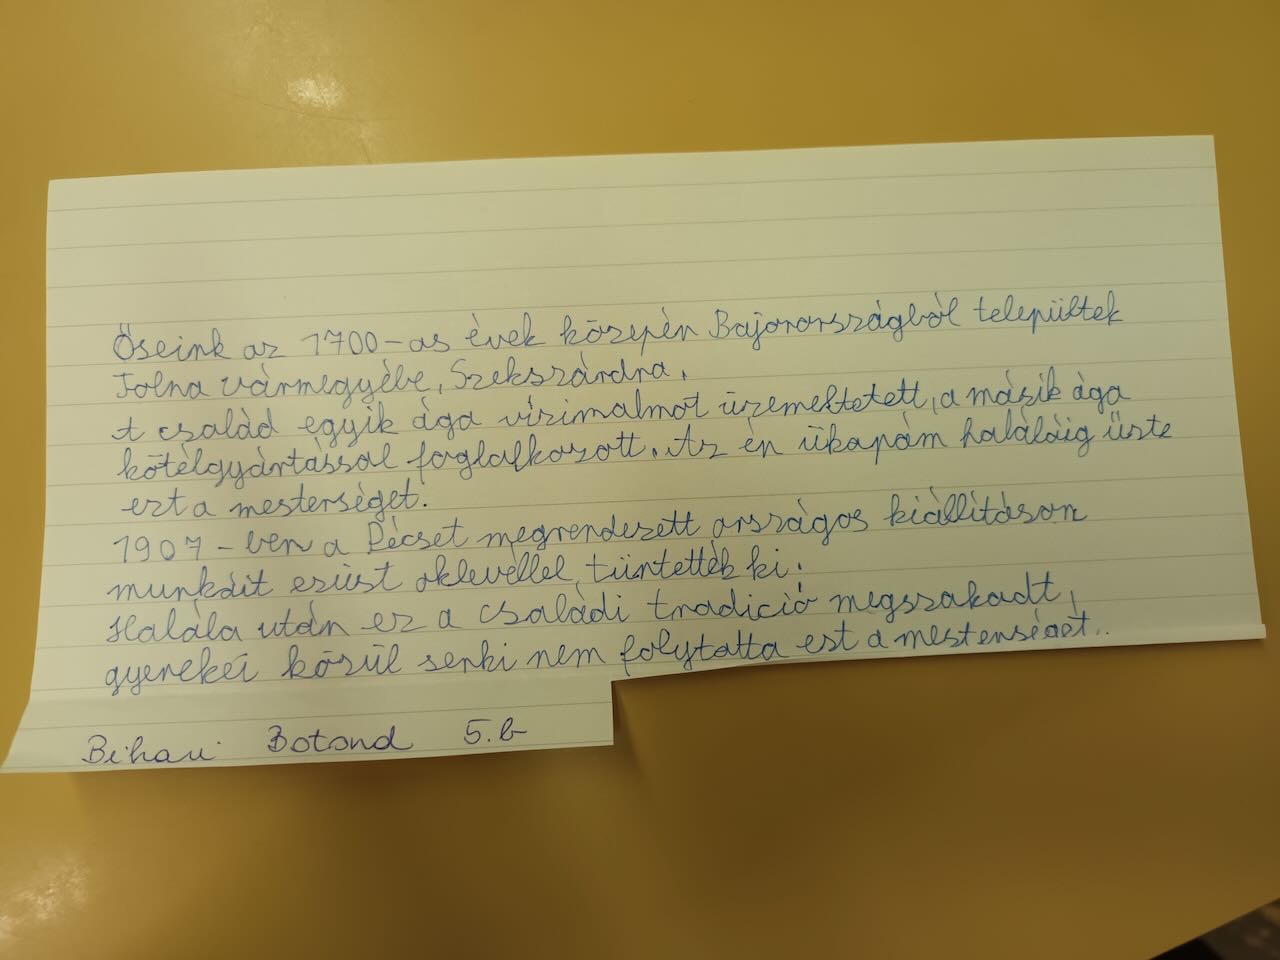 Őseink az 1700-as évek közepén Bajorországból települtek
Tolna vármegyébe, Szekszárdra.
A család egyik ága vízimalmot üzemeltetett, a másik ága
kötélgyártással foglalkozott. Az én ükapám haláláig űzte
ezt a mesterséget.
1907-ben a Pécset megrendezett országos kiállításon
munkáit ezüst oklevéllel tüntették ki.
Halála után ez a családi tradíció megszakadt,
gyerekei közül senki nem folytatta ezt a mesterséget.
Bihari Botond 5.b